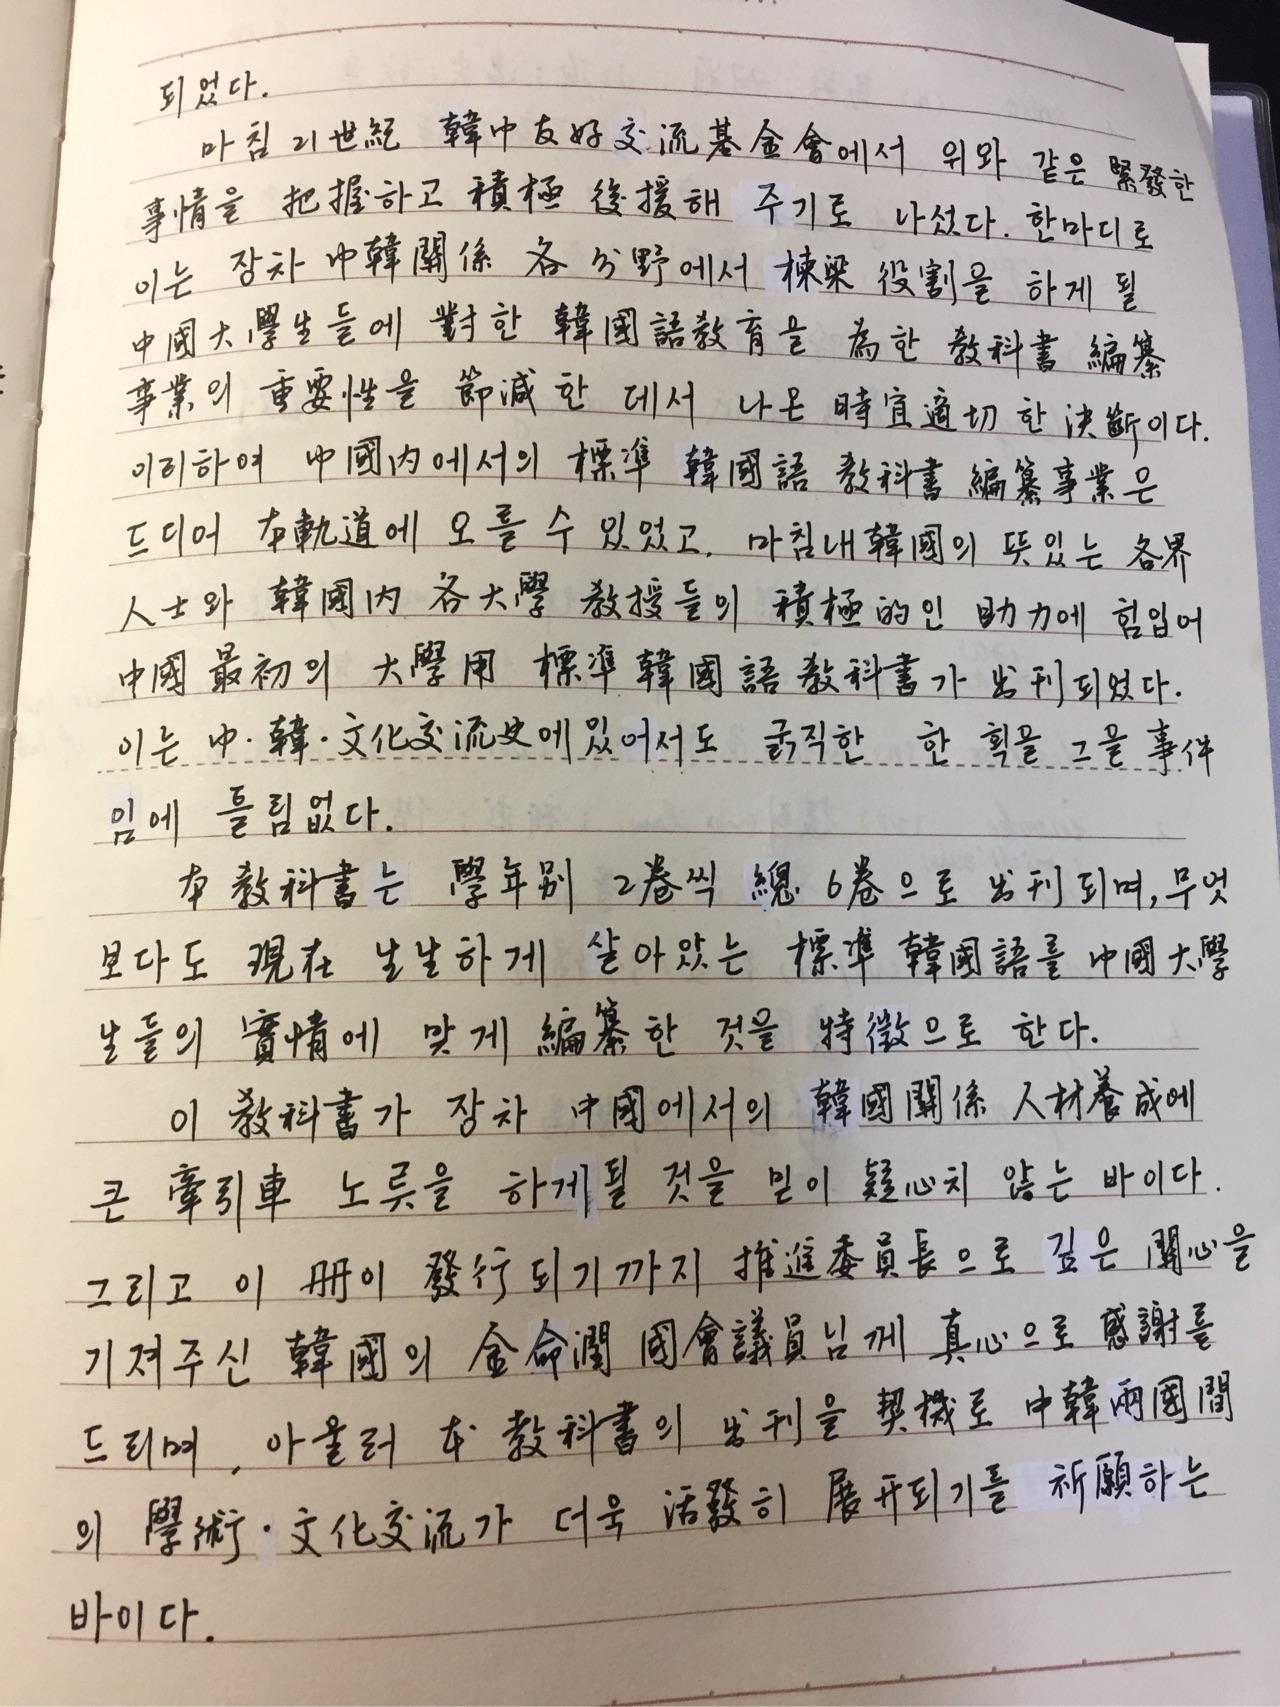 되었다.
마침 21世紀 韓中友好交流基金會에서 위와 같은 緊發한
事情을 把握하고 積極 後援해 주기로 나섰다. 한마디로
이는 장차 中韓關係 各 分野에서 棟梁 役割을 하게 될
中國大學生들에 對한 韓國語敎育을 為한 敎科書 編纂
事業의 重要性을 節減한 데서 나온 時宜適切한 決斷이다.
이리하여 中國內에서의 標準 韓國語 敎科書 編纂事業은
드디어 本軌道에 오를 수 있었고, 마침내 韓國의 뜻있는 各界
人士와 韓國內 各大學 敎授들의 積極的인 助力에 힘입어
中國 最初의 大學用 標準韓國語敎科書가 出刊되었다.
이는 中·韓·文化交流史에 있어서도 굵직한 한 획을 그을 事件
임에 틀림없다.
本 敎科書는 學年別 2卷씩 總 6卷으로 出刊되며, 무엇
보다도 現在 生生하게 살아있는 標準 韓國語를 中國大學
生들의 實情에 맞게 編纂한 것을 特徵으로 한다.
이 敎科書가 장차 中國에서의 韓國關係 人材養成에
큰 牽引車 노릇을 하게 될 것을 믿어 疑心치 않는 바이다.
그리고 이 冊이 發行되기까지 推進委員長으로 깊은 關心을
기져주신 韓國의 金命潤 國會議員님께 真心으로 感謝를
드리며, 아울러 本 敎科書의 出刊을 契機로 中韓兩國間
의 學術·文化交流가 더욱 活發히 展开되기를 祈願하는
바이다.